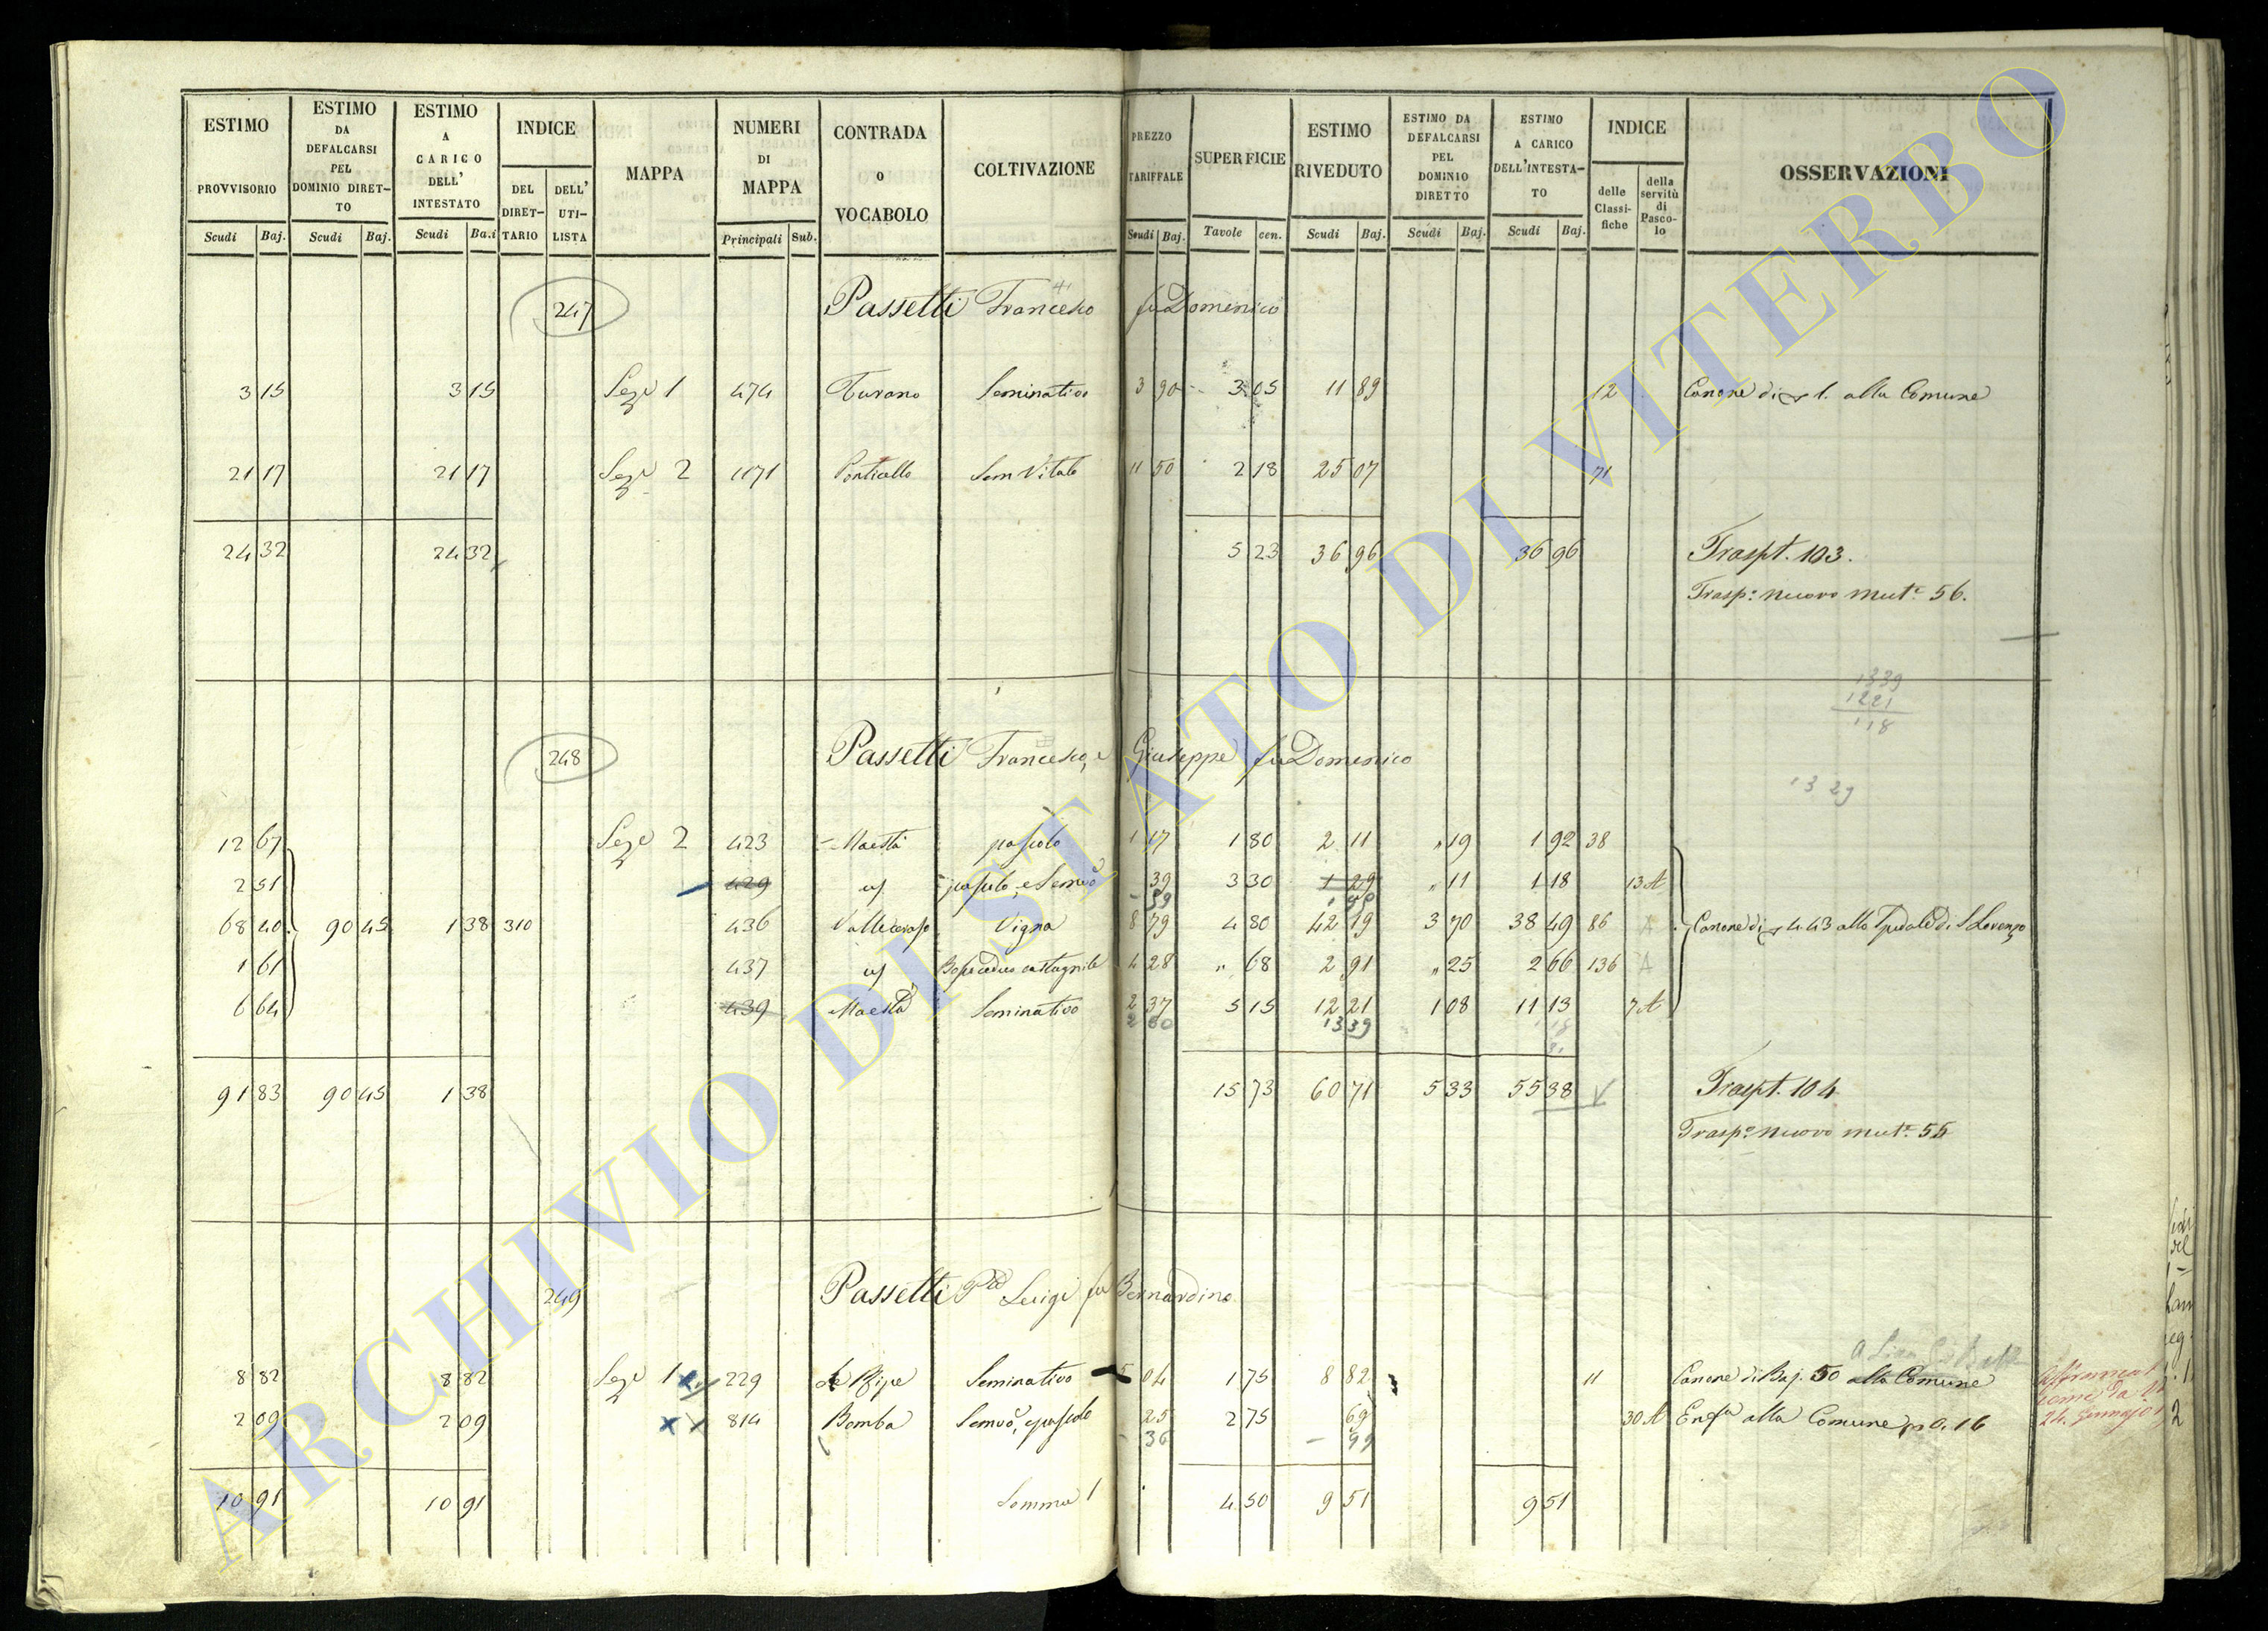 ESTIMO PROVVISORIO Scudi Baj. ESTIMO DA DEFALCARSI PEL DOMINIO DIRET-TO Scudi Baj. ESTIMO A CARICO DELL' INTESTATO Scudi Ba.i INDICE DEL DIRET-TARIO DELL' UTI-LISTA MAPPA NUMERI DI MAPPA Principali Sub. CONTRADA O VOCABOLO COLTIVAZIONE PREZZO TARIFFALE Scudi Baj. SUPERFICIE Tavole cen. ESTIMO RIVEDUTO Scudi Baj. ESTIMO DA DEFALCARSI PEL DOMINIO DIRETTO Scudi Baj. ESTIMO A CARICO DELL'INTESTA-TO Scudi Baj. INDICE delle Classi-fiche della servitù di Pasco-lo OSSERVAZIONI
247 Passetti Francesco fu Domenico
3 15 3 15 Seze 1 474 Turano Seminativo 3 90 3 05 11 89 12 Canone di 1. alla Comune
21 17 21 17 Seze 2 1171 Ponticello Sem Vitato 11 50 2 18 25 07 71
24 32 24 32 5 23 36 96 36 96 Traspt. 103.
Trasp: nuovo mute 56.
1339
1221
118
248 Passetti Francesco, e Giuseppe fu Domenico
1329
12 67 Seze 2 423 Maestà pascolo 1 17 1 80 2 11 " 19 1 92 38
2 51 429 pascolo, e Semvo 39 3 30 1 29 " 11 1 18 13 A
68 40 90 45 1 38 310 436 Vigna 8 79 4 80 42 19 3 70 38 49 86 A Canone di 4.43 allo Spedale di S Lorenzo
1 61 437 4 28 " 68 2 91 " 25 2 66 136 A
6 64 439 Maestà Seminativo 2 37 5 15 12 21 1 08 11 13 7 A
2 60 13 39
91 83 90 45 1 38 15 73 60 71 5 33 55 38 Traspt. 104
Trasp: nuovo mute 55
249 Passetti Luigi fu Bernardino
8 82 8 82 Seze 1 229 Le Ripe Seminativo 5 04 1 75 8 82 11 Canone di Baj. 50 alla Comune
2 09 2 09 814 Bomba Semvo, e pascolo 25 2 75 69 30 A Enfa alla Comune p 0.16
36 99
10 91 10 91 Somma 4 50 9 51 9 51
ARCHIVIO DI STATO DI VITERBO